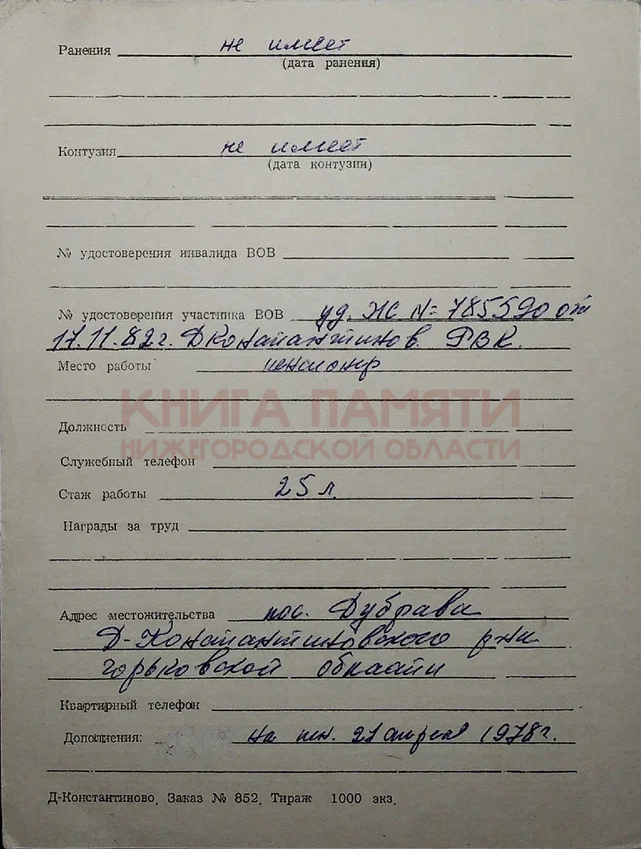 Ранения не имеет
(дата ранения)
Контузия не имеет
(дата контузии)
№ удостоверения инвалида ВОВ
№ удостоверения участника ВОВ уд. ЖС № 785590 от
17.11.82г. Дконстантинов. РВК.
Место работы пенсионер
КНИГА ПАМЯТИ
Должность
НИЖЕГОРОДСКОЙ ОБЛАСТИ
Служебный телефон
Стаж работы 25 л.
Награды за труд
Адрес местожительства пос. Дубрава
Д-Константиновского р-на
горьковской области
Квартирный телефон
Дополнения: на 21 апреля 1978г.
Д-Константиново. Заказ № 852. Тираж 1000 экз.